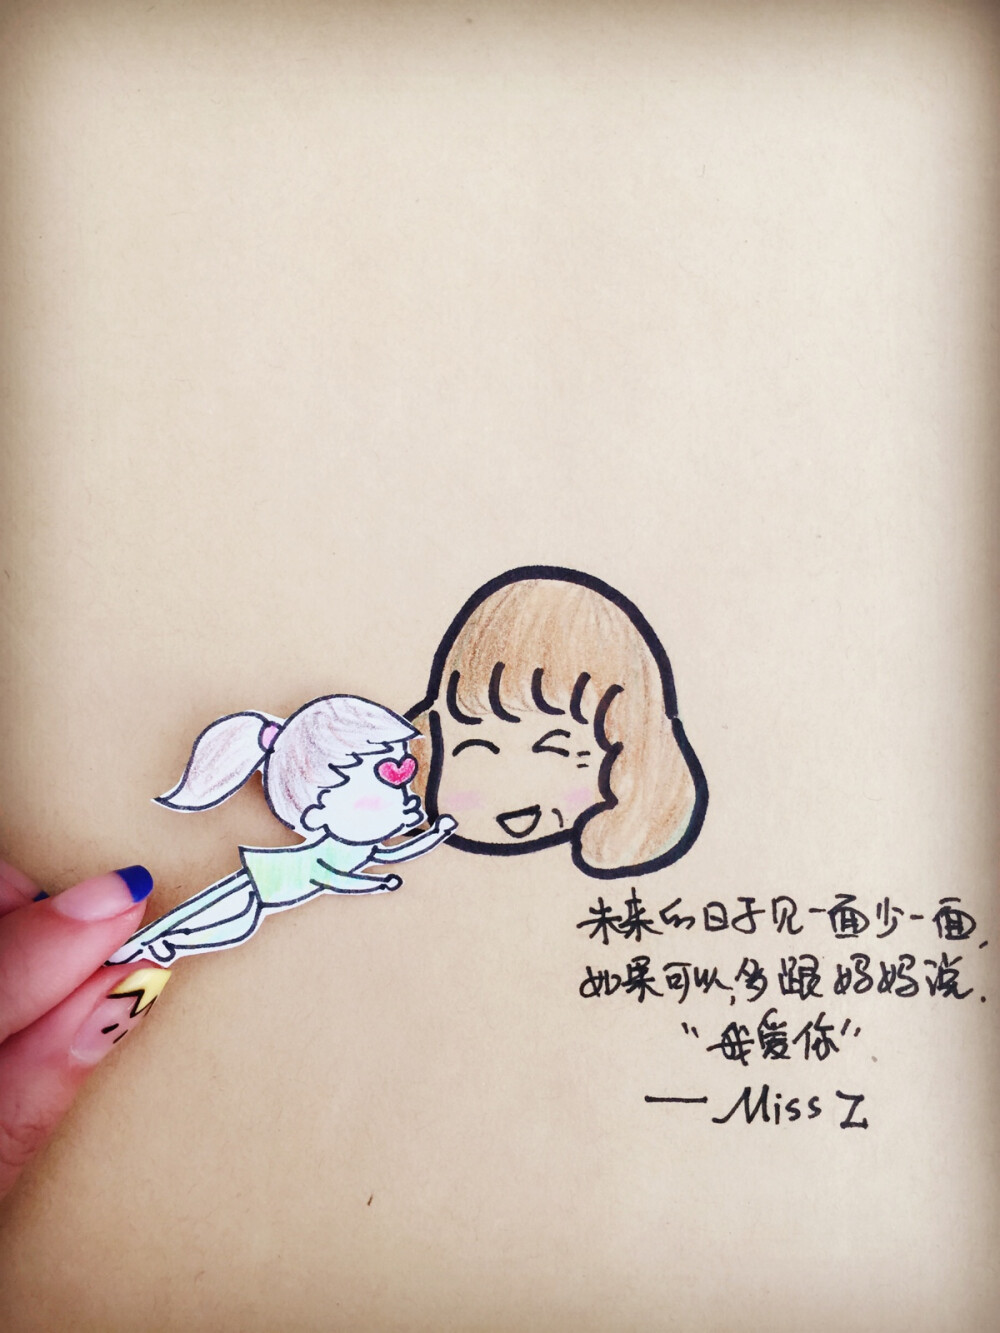 未来的日子见一面少一面,
如果可以,多跟妈妈说.
"我爱你"
—Miss Z